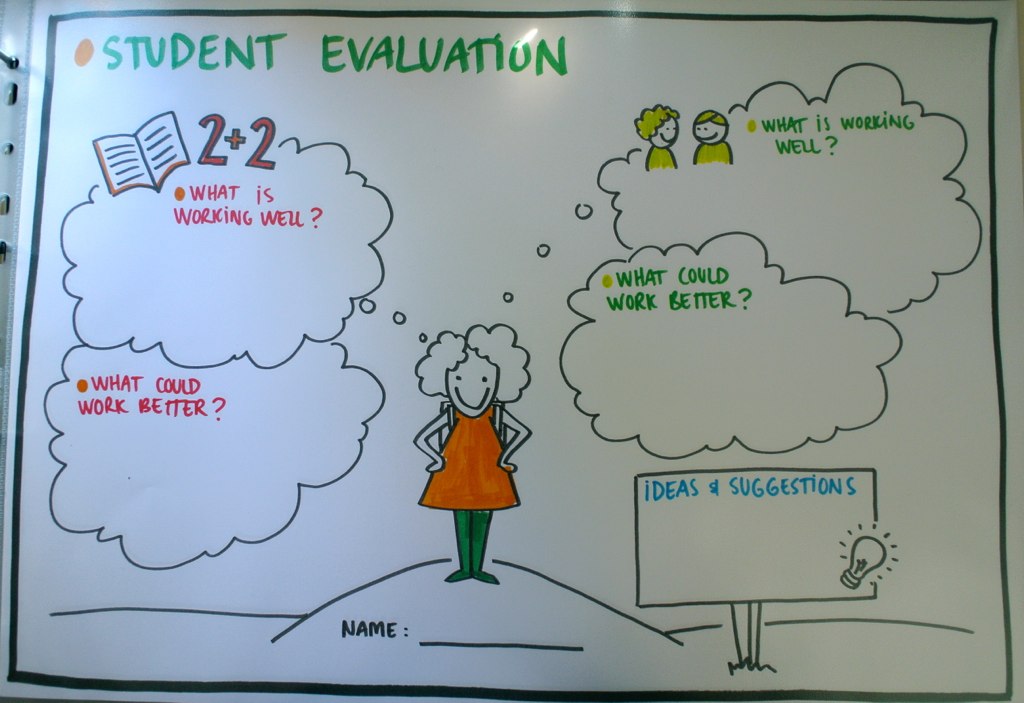 STUDENT EVALUATION
2+2
WHAT iS
WORKiNG WELL?
WHAT COULD
WORK BETTER?
WHAT iS WORKiNG
WELL?
WHAT COULD
WORK BETTER?
iDEAS & SUGGESTiONS
NAME: